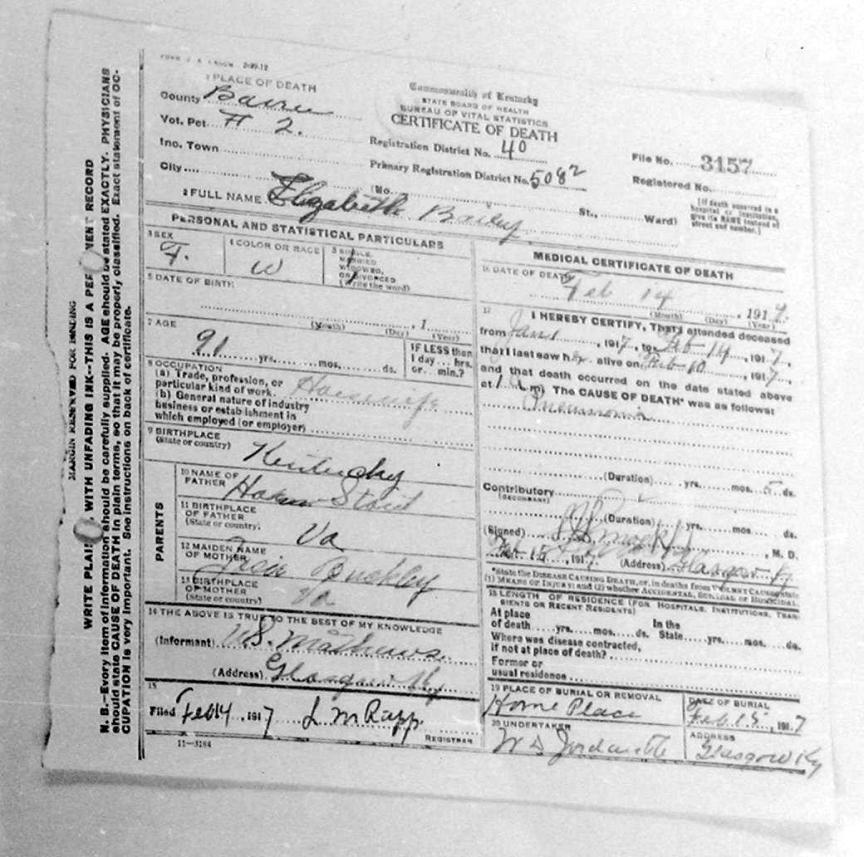 PLACE OF DEATH
County Barren
Vot. Pct. # 2.
Inc. Town
City
Commonwealth of Kentucky
STATE BOARD OF HEALTH
BUREAU OF VITAL STATISTICS
CERTIFICATE OF DEATH
Registration District No. 40
Primary Registration District No. 5082
File No. 3157
Registered No.
(No. St., Ward)
[If death occurred in a hospital or institution, give its NAME instead of street and number.]
2 FULL NAME Elizabeth Bailey
PERSONAL AND STATISTICAL PARTICULARS
3 SEX
F.
4 COLOR OR RACE
W
5 SINGLE, MARRIED, WIDOWED, OR DIVORCED (Write the word)
6 DATE OF BIRTH
(Month) (Day) , 1 (Year)
7 AGE
91 yrs. mos. ds.
IF LESS than 1 day... hrs. or... min.?
8 OCCUPATION
(a) Trade, profession, or
particular kind of work. Housewife
(b) General nature of industry
business or establishment in
which employed (or employer)
9 BIRTHPLACE
(State or country) Kentucky
PARENTS
10 NAME OF FATHER
11 BIRTHPLACE OF FATHER
(State or country) Va
12 MAIDEN NAME OF MOTHER Buckley
13 BIRTHPLACE OF MOTHER
(State or country) Va
14 THE ABOVE IS TRUE TO THE BEST OF MY KNOWLEDGE
(Informant) Mathews
(Address) Glasgow Ky
15
Filed Feb 14, 1917 L. M Rapp.
REGISTRAR
11-3184
MEDICAL CERTIFICATE OF DEATH
16 DATE OF DEATH
Feb 14, 1917
(Month) (Day) (Year)
17 I HEREBY CERTIFY, That I attended deceased
from Jan 1, 1917, to Feb-14, 1917,
that I last saw her alive on Feb-10, 1917,
and that death occurred on the date stated above
at 1 A.m. The CAUSE OF DEATH* was as follows:
Pneumonia
(Duration) yrs. mos. 5 ds.
Contributory
(SECONDARY)
(Duration) yrs. mos. ds.
(Signed) , M. D.
Feb-15, 1917 (Address) Glasgow Ky
*State the DISEASE CAUSING DEATH, or, in deaths from VIOLENT CAUSES, state
(1) MEANS OF INJURY; and (2) whether ACCIDENTAL, SUICIDAL or HOMICIDAL
18 LENGTH OF RESIDENCE (FOR HOSPITALS, INSTITUTIONS, TRAN-
SIENTS OR RECENT RESIDENTS)
At place of death yrs. mos. ds. In the State yrs. mos. ds.
Where was disease contracted,
if not at place of death?
Former or
usual residence
19 PLACE OF BURIAL OR REMOVAL
Home Place
DATE OF BURIAL
Feb 15, 1917
20 UNDERTAKER
W
ADDRESS
Glasgow Ky
MARGIN RESERVED FOR BINDING
WRITE PLAI WITH UNFADING INK--THIS IS A PER NENT RECORD
N. B.--Every item of information should be carefully supplied. AGE should be stated EXACTLY. PHYSICIANS
should state CAUSE OF DEATH in plain terms, so that it may be properly classified. Exact statement of OC-
CUPATION is very important. See instructions on back of certificate.